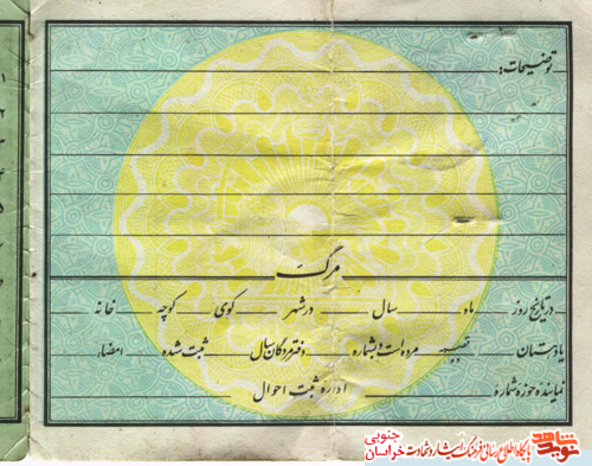 توضیحات:
مرگ
در تاریخ روز ماه سال در شهر کوی کوچه خانه
یا دبستان قصبه ده مرده است و بشماره دفتر مردگان سال ثبت شده امضاء
نماینده حوزه شماره اداره ثبت احوال
۱
۲
۳
۴
۵
نوید شاهد پایگاه اطلاع رسانی فرهنگ ایثار و شهادت
خراسان جنوبی